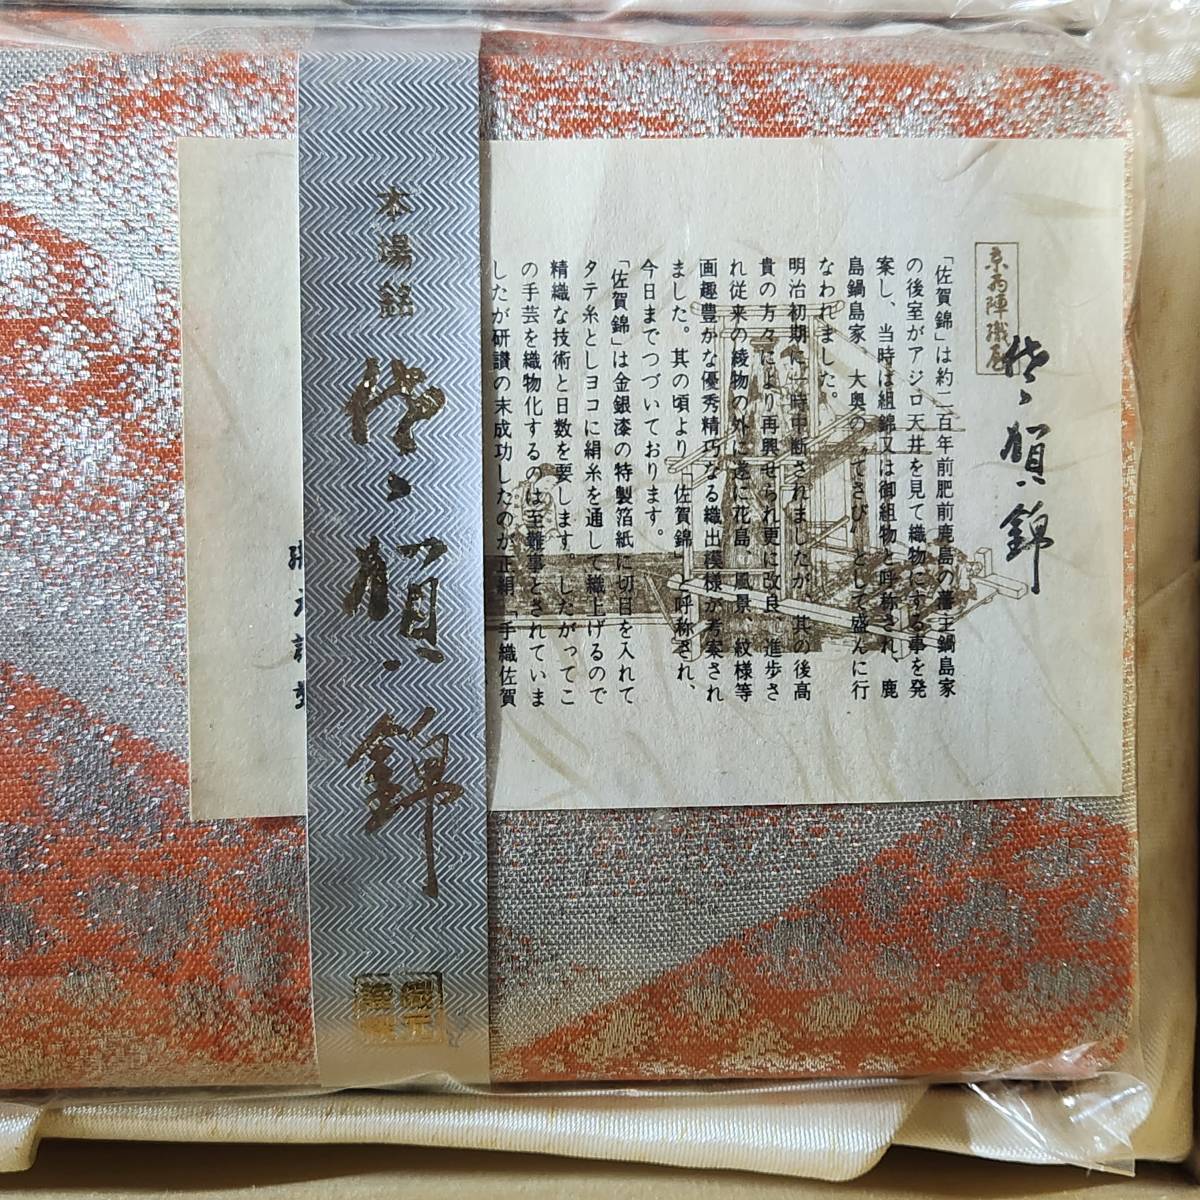 京西陣織屋
佐賀錦
「佐賀錦」は約二百年前肥前鹿島の藩主鍋島家
の後室がアジロ天井を見て織物にする事を発
案し、当時は組錦又は御組物と呼称され、鹿
島鍋島家、大奥の〝てさび〟として盛んに行
なわれました。
明治初期に一時中断されましたが、其の後高
貴の方々により再興せられ更に改良、進歩さ
れ従来の綾物の外に遂に花鳥、風景、紋様等
画趣豊かな優秀精巧なる織出模様が考案され
ました。其の頃より「佐賀錦」と呼称され、
今日までつづいております。
「佐賀錦」は金銀漆の特製箔紙に切目を入れて
タテ糸としヨコに絹糸を通して織上げるので
精織な技術と日数を要します。したがってこ
の手芸を織物化するのは至難事とされていま
したが研讃の末成功したのが正絹「手織佐賀
本場銘
佐賀錦
織元